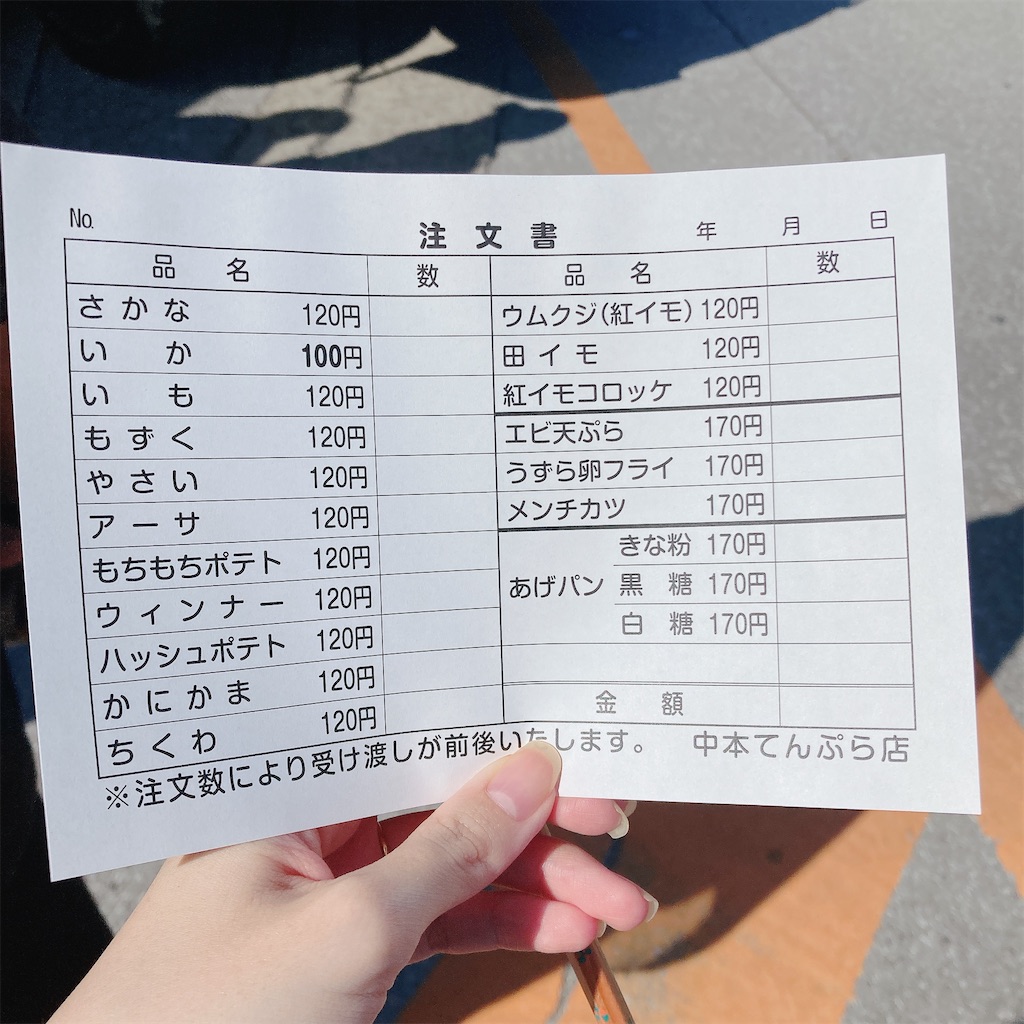 No. 注文書 年 月 日
品名 数 品名 数
さかな 120円 ウムクジ(紅イモ) 120円
いか 100円 田イモ 120円
いも 120円 紅イモコロッケ 120円
もずく 120円 エビ天ぷら 170円
やさい 120円 うずら卵フライ 170円
アーサ 120円 メンチカツ 170円
もちもちポテト 120円 あげパン きな粉 170円
ウィンナー 120円 黒糖 170円
ハッシュポテト 120円 白糖 170円
かにかま 120円
ちくわ 120円 金額
※注文数により受け渡しが前後いたします。 中本てんぷら店